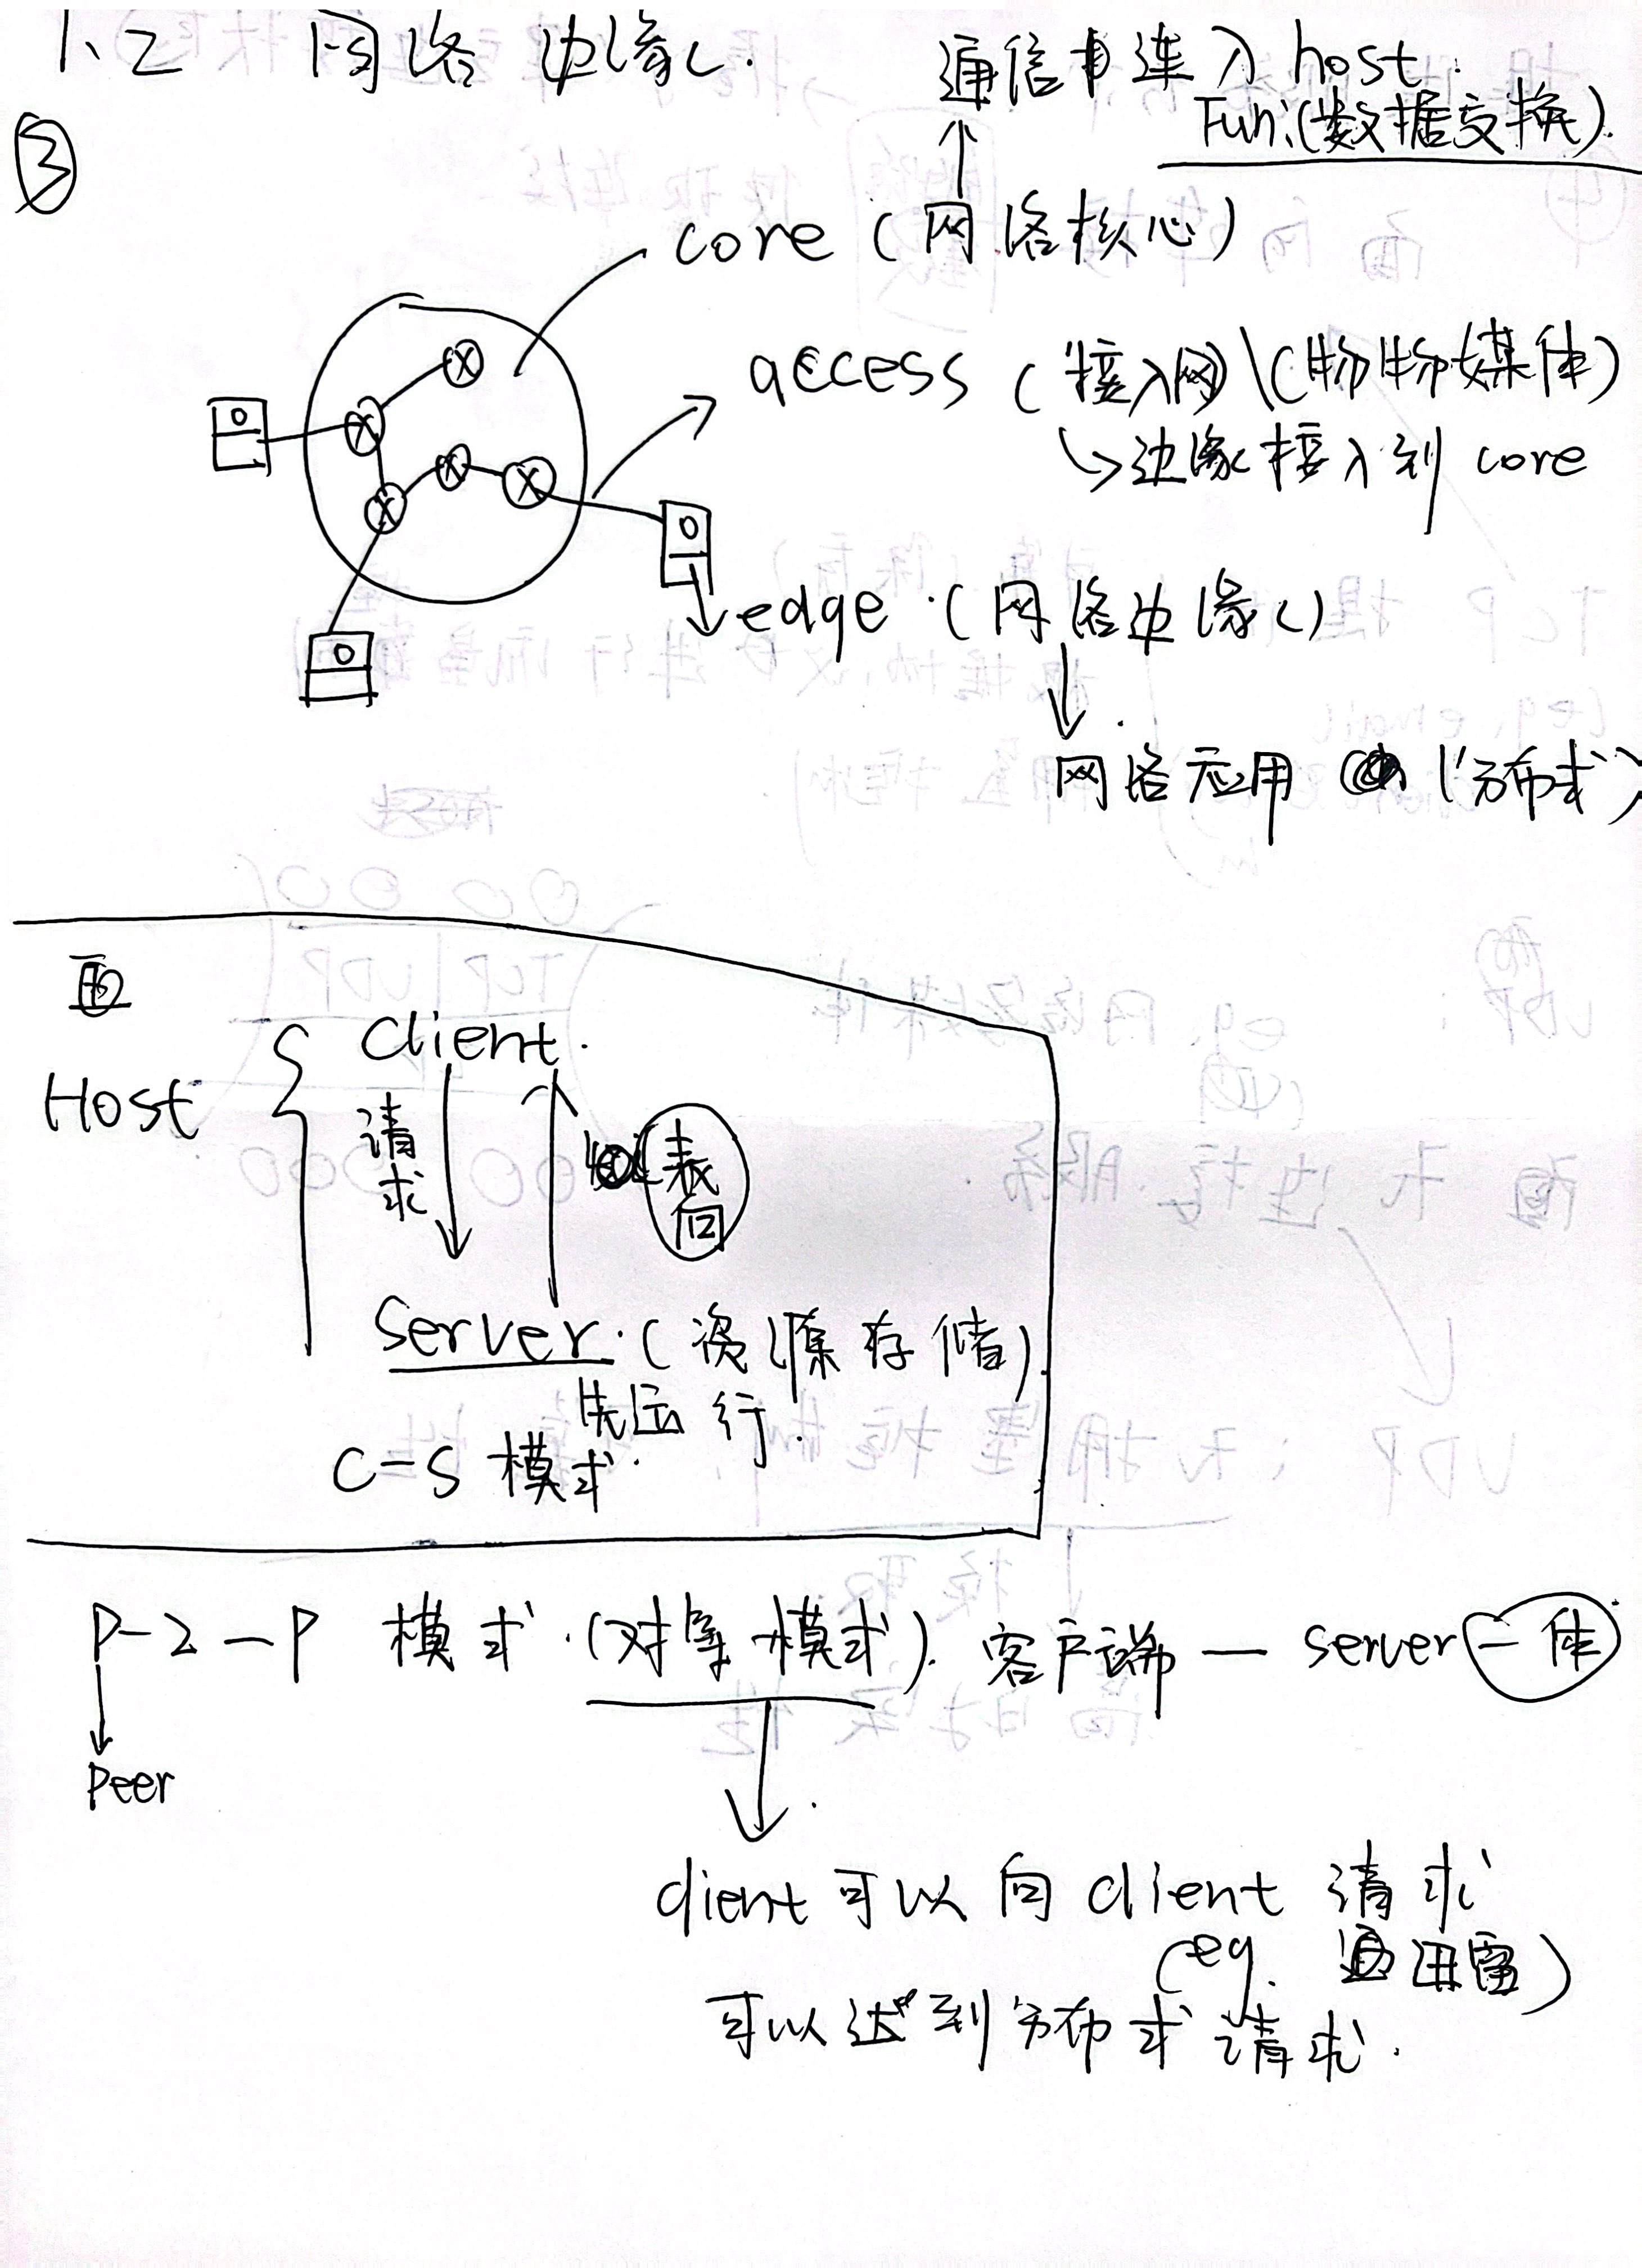 1.2 网络边缘.
③
通信中连入 host.
Fun:(数据交换).
core (网络核心)
access (接入网)\(物物媒体)
↳边缘接入到 core
edge.(网络边缘)
网络应用 (分布式)
Host
client.
请求
返回
server.(资源存储)
先运行.
C-S 模式.
P-2-P 模式.(对等模式). 客户端 — server 一体
Peer
client 可以向 client 请求
(eg. 迅雷)
可以达到分布式请求.